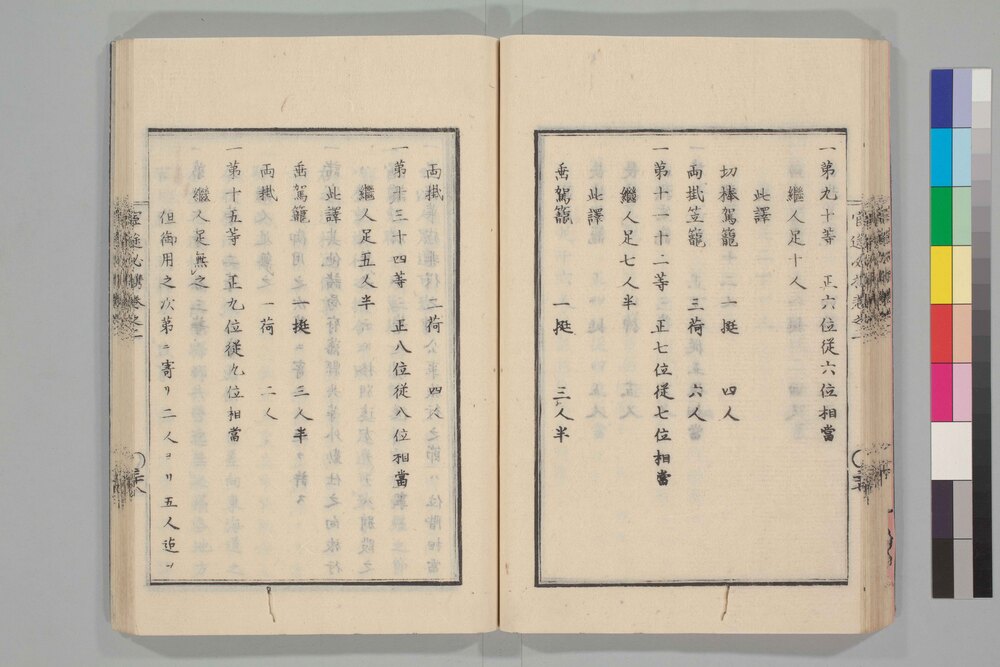 一第九十等　正六位従六位相當
繼人足十人
此譯
切棒駕籠　一挺　四人
両掛笠籠　三荷　六人
一第十一十二等　正七位従七位相當
繼人足七人半
此譯
垂駕籠　一挺　三人半
両掛　二荷　四人
一第十三十四等　正八位従八位相當
繼人足五人半
此譯
垂駕籠　一挺　三人半
両掛　一荷　二人
一第十五等　正九位従九位相當
繼人足無之
但御用之次第ニ寄リ二人ヨリ五人迠ハ